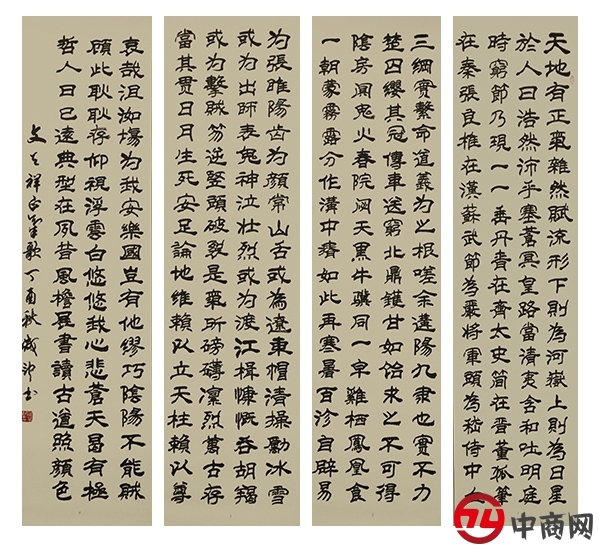 天地有正氣雜然賦流形下則為河嶽上則為日星
於人曰浩然沛乎塞蒼冥皇路當清夷含和吐明庭
時窮節乃現一一垂丹青在齊太史簡在晉董狐筆
在秦張良椎在漢蘇武節為嚴將軍頭為嵇侍中血
三綱實繫命道義為之根嗟余遘陽九隸也實不力
楚囚纓其冠傳車送窮北鼎鑊甘如飴求之不可得
陰房闃鬼火春院閟天黑牛驥同一皁雞棲鳳凰食
一朝蒙霧露分作溝中瘠如此再寒暑百沴自辟易
為張睢陽齒為顏常山舌或為遼東帽清操勵冰雪
或為出師表鬼神泣壯烈或為渡江楫慷慨吞胡羯
或為擊賊笏逆豎頭破裂是氣所磅礴凜烈萬古存
當其貫日月生死安足論地維賴以立天柱賴以尊
哀哉沮洳場為我安樂國豈有他繆巧陰陽不能賊
顧此耿耿存仰視浮雲白悠悠我心悲蒼天曷有極
哲人日已遠典型在夙昔風檐展書讀古道照顏色
文天祥正氣歌丁酉秋成書
中商网